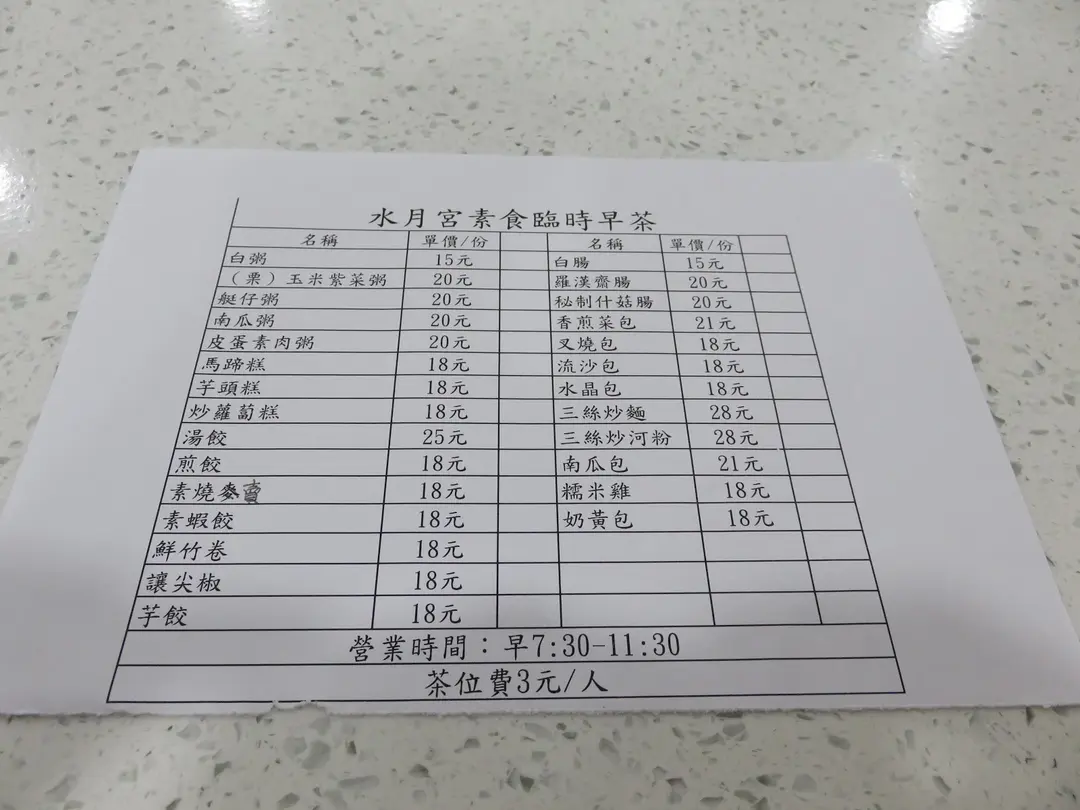 水月宮素食臨時早茶
名稱 單價/份 名稱 單價/份
白粥 15元 白腸 15元
（栗）玉米紫菜粥 20元 羅漢齋腸 20元
艇仔粥 20元 秘制什菇腸 20元
南瓜粥 20元 香煎菜包 21元
皮蛋素肉粥 20元 叉燒包 18元
馬蹄糕 18元 流沙包 18元
芋頭糕 18元 水晶包 18元
炒蘿蔔糕 18元 三絲炒麵 28元
湯餃 25元 三絲炒河粉 28元
煎餃 18元 南瓜包 21元
素燒麥賣 18元 糯米雞 18元
素蝦餃 18元 奶黃包 18元
鮮竹卷 18元
讓尖椒 18元
芋餃 18元
營業時間：早7:30-11:30
茶位費3元/人